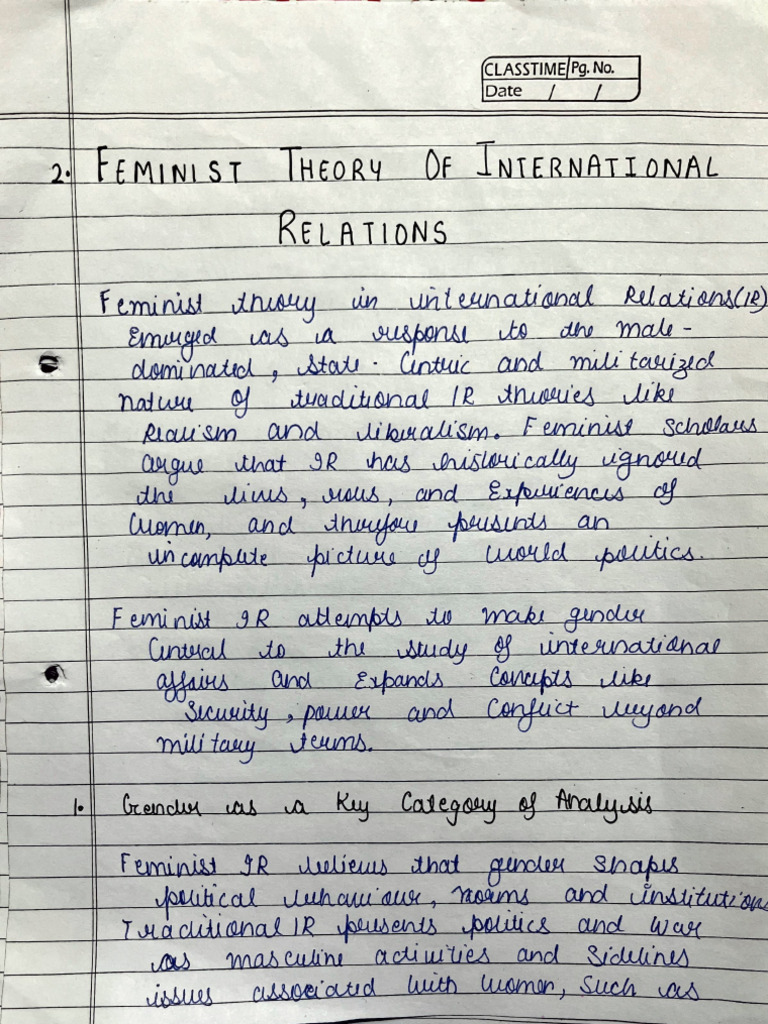 CLASSTIME Pg. No.
Date / /
2. FEMINIST THEORY OF INTERNATIONAL
RELATIONS
Feminist theory in international Relations (IR)
Emerged as a response to the male-
dominated, state-Centric and militarized
nature of traditional IR theories like
Realism and liberalism. Feminist scholars
argue that IR has historically ignored
the lives, roles, and Experiences of
Women, and therefore presents an
incomplete picture of world politics.
Feminist IR attempts to make gender
Central to the study of international
affairs and Expands Concepts like
Security, power and Conflict beyond
military terms.
1. Gender as a Key Category of Analysis
Feminist IR believes that gender shapes
political behaviour, norms and institutions
Traditional IR presents politics and war
as masculine activities and Sidelines
issues associated with women, such as